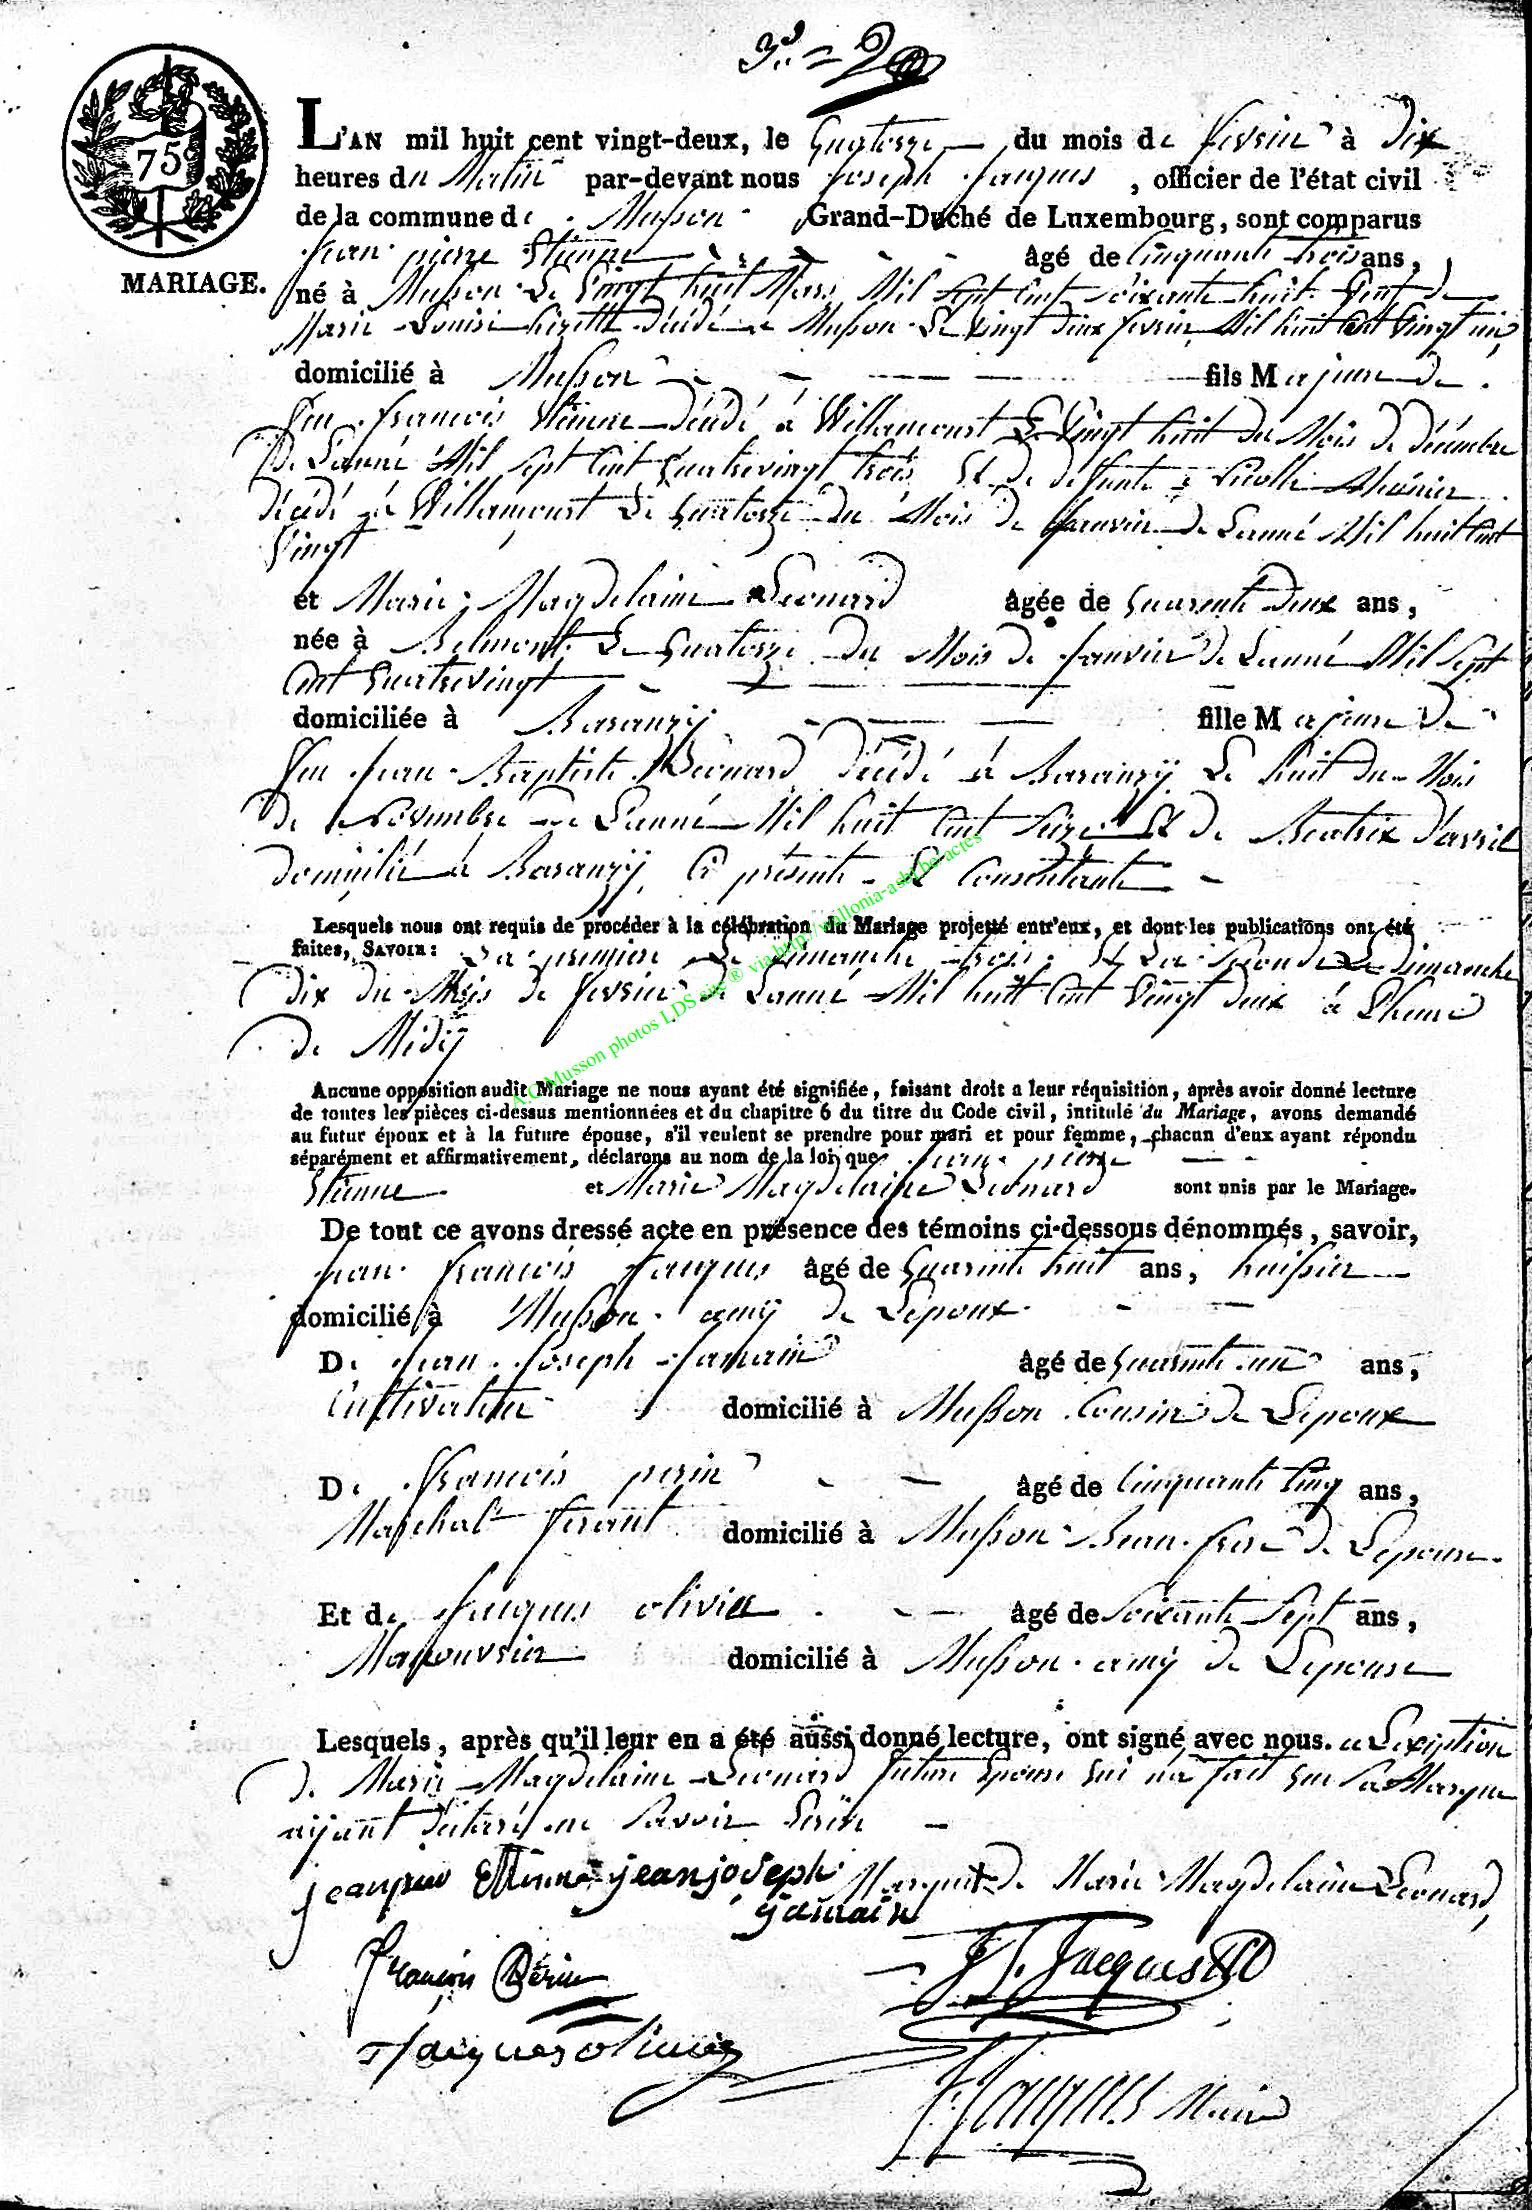 3.e = 2
75c
MARIAGE.
L'AN mil huit cent vingt-deux, le Quatorze du mois de fevrier à dix
heures du Matin par-devant nous Joseph Jacques, officier de l'état civil
de la commune de Musson Grand-Duché de Luxembourg, sont comparus
Jean pierre Etienne âgé de Cinquante trois ans,
né à Musson Le Vingt huit Mars Mil Sept Cent soixante huit Veuf de
Marie Louise décédé à Musson Le Vingt deux fevrier Mil huit Cent Vingt un,
domicilié à Musson fils Majeur de
feu francois Etienne décédé à Willancourt Le Vingt huit du Mois de décembre
De Lanné Mil Sept Cent Quatrevingt trois Et de deffunte Nicolle Meunier
décédé à Willancourt Le Quatorze du Mois de Janvier de Lanné Mil huit Cent
Vingt
et Marie Magdelaine Leonard âgée de Quarente Deux ans,
née à Belmont Le Quatorze du Mois de Janvier de Lanné Mil Sept
Cent Quatrevingt
domiciliée à Baranzÿ fille Majeure De
feu Jean Baptiste Leonard décédé à Baranzÿ Le huit du Mois
de Novembre de Lanné Mil huit Cent Seize Et de Beatrix d'avril
domicilié à Baranzÿ Ci présente Et Consentante
Lesquels nous ont requis de procéder à la célébration du Mariage projetté entr'eux, et dont les publications ont été
faites, SAVOIR: La premiere Le Dimanche trois Et La Seconde Le Dimanche
dix du Mois de fevrier De Lanné Mil huit Cent Vingt deux à Lheure
de Midÿ
A.C Musson photos LDS site ® via http://wallonia-asbl.be/actes
Aucune opposition audit Mariage ne nous ayant été signifiée, faisant droit a leur réquisition, après avoir donné lecture
de toutes les pièces ci-dessus mentionnées et du chapitre 6 du titre du Code civil, intitulé du Mariage, avons demandé
au futur époux et à la future épouse, s'il veulent se prendre pour mari et pour femme, chacun d'eux ayant répondu
séparément et affirmativement, déclarons au nom de la loi que Jean pierre
Etienne et Marie Magdelaine Leonard sont unis par le Mariage.
De tout ce avons dressé acte en présence des témoins ci-dessous dénommés, savoir,
Jean francois Jacques âgé de Quarente huit ans, huissier
domicilié à Musson amÿ de Lepoux
De Jean Joseph Jamain âgé de Quarente un ans,
Cultivateur domicilié à Musson Cousin de Lepoux
De francois perin âgé de Cinquante Cinq ans,
Marchal ferant domicilié à Musson Beau frere de Lepouse
Et de Jacques olivier âgé de Soixante Sept ans,
Manouvrier domicilié à Musson amÿ de Lepouse
Lesquels, après qu'il leur en a été aussi donné lecture, ont signé avec nous. a Lexeption
de Marie Magdelaine Leonard future Epouse qui na fait que Sa Marque
aÿant declaré ne Savoir Ecrire
jeanpier Ettienne jean joseph Marque de Marie Magdelaine Leonard,
jamain
François Périn J f. Jacques
Jacques olivier
J. Jacques Maire